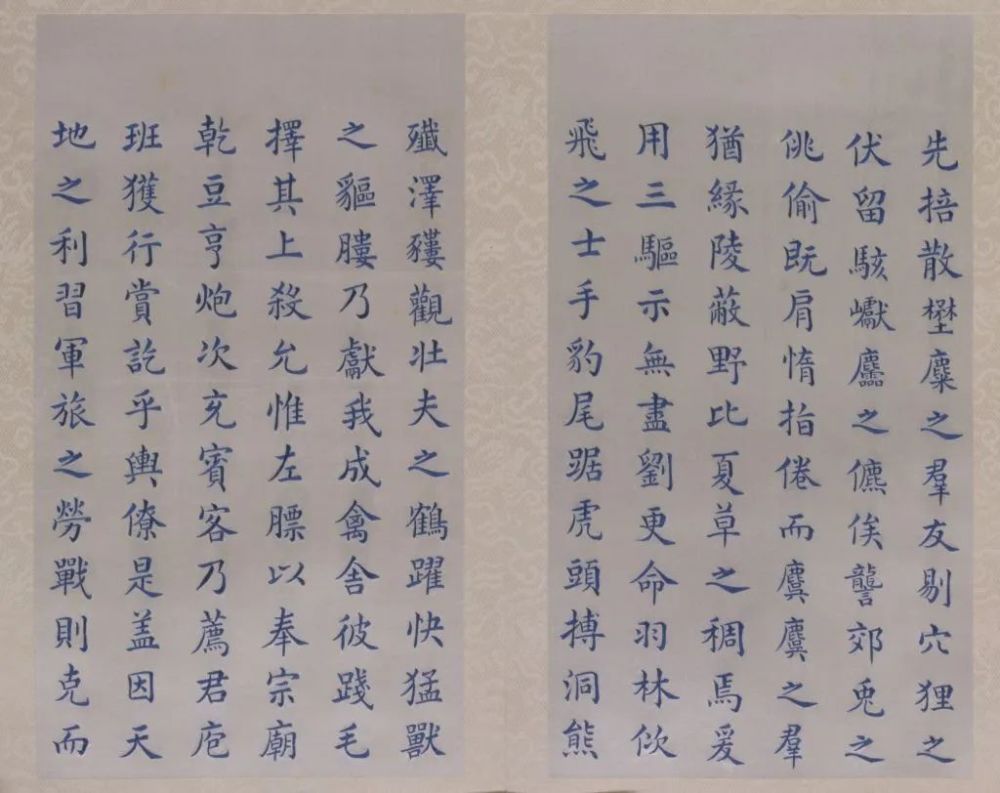 先掊散壄麋之羣友剔穴狸之
伏留駭巘麢之儦俟讋郊兔之
佻偷既肩惰指倦而麌麌之羣
猶緣陵蔽野比夏草之稠焉爰
用三驅示無盡劉更命羽林佽
飛之士手豹尾踞虎頭搏洞熊
殲澤貗觀壯夫之鶴躍快猛獸
之貙膢乃獻我成禽舍彼踐毛
擇其上殺允惟左膘以奉宗廟
乾豆亨炮次充賓客乃薦君庖
班獲行賞訖乎輿僚是盖因天
地之利習軍旅之勞戰則克而